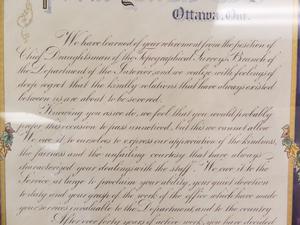 Ottawa, Ont.
We have learned of your retirement from the position of
Chief Draughtsman of the Topographical Surveys Branch of
the Department of the Interior, and we realize with feelings of
deep regret that the kindly relations that have always existed
between us are about to be severed.
Knowing you as we do, we feel that you would probably
prefer this occasion to pass unnoticed, but this we cannot allow
We owe it to ourselves to express our appreciation of the kindness,
the fairness and the unfailing courtesy that have always
characterized your dealings with the staff. We owe it to the
Service at large to proclaim your ability, your quiet devotion
to duty and your grasp of the work of the office which have made
your services invaluable to the Department, and to the country
After over forty years of active work, you have decided